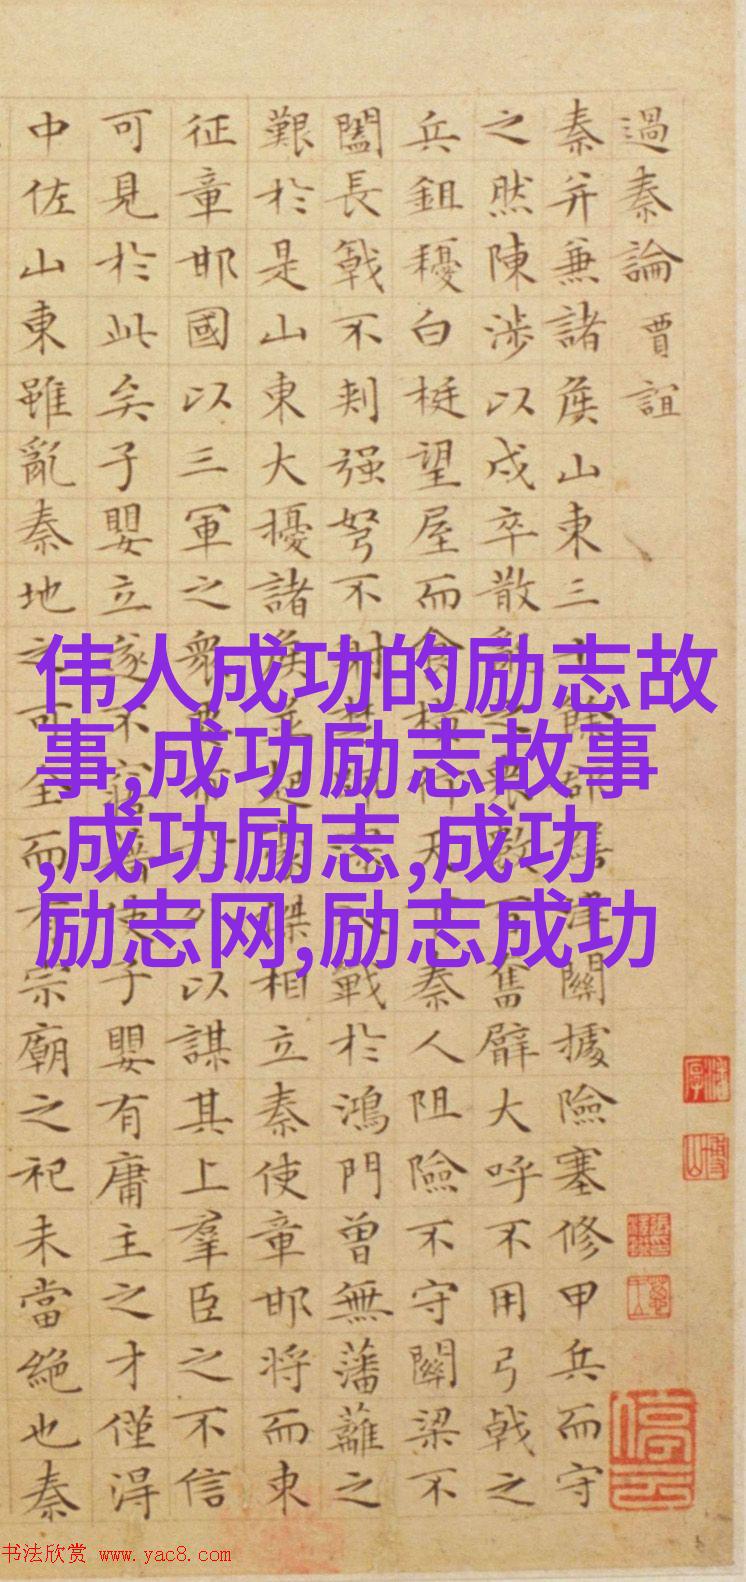 過秦論 賈誼
秦并兼諸侯山東三十餘郡繕津關據險塞修甲兵而守
之然陳涉以戍卒散亂之衆數百奮臂大呼不用弓戟之
兵鉏耰白梃望屋而食橫行天下秦人阻險不守關梁不
闔長戟不刺强弩不射楚師深入戰於鴻門曾無藩籬之
艱於是山東大擾諸侯並起豪傑相立秦使章邯將而東
征章邯國以三軍之衆要市於外以謀其上羣臣之不信
可見於此矣子嬰立遂不寤藉使子嬰有庸主之才僅得
中佐山東雖亂秦地之可全而有宗廟之祀未當絶也秦
伟人成功的励志故
事,成功励志故事
,成功励志,成功
励志网,励志成功
书法欣赏 www.yac8.com